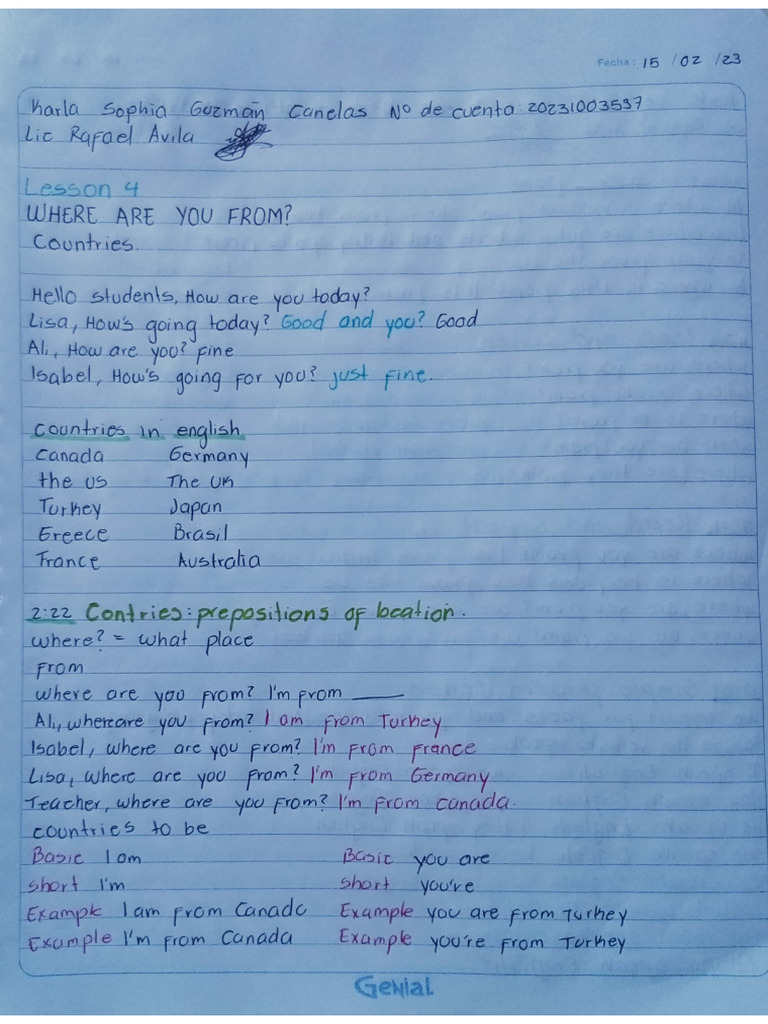 Fecha: 15 / 02 / 23
Karla Sophia Guzmán Canelas Nº de cuenta: 20231003537
Lic Rafael Avila
Lesson 4
WHERE ARE YOU FROM?
Countries.
Hello students, How are you today?
Lisa, How's going today? Good and you? Good
Ali, How are you? fine
Isabel, How's going for you? just fine.
countries in english
Canada Germany
the us The UK
Turkey Japan
Greece Brasil
France Australia
2:22 Contries: prepositions of location.
where? = what place
From
where are you from? I'm from ____
Ali, where are you from? I am from Turkey
Isabel, where are you from? I'm from france
Lisa, where are you from? I'm from Germany
Teacher, where are you from? I'm from canada.
countries to be
Basic I am Basic you are
short I'm short you're
Example I am from Canada Example you are from Turkey
Example I'm from Canada Example you're from Turkey
Genial